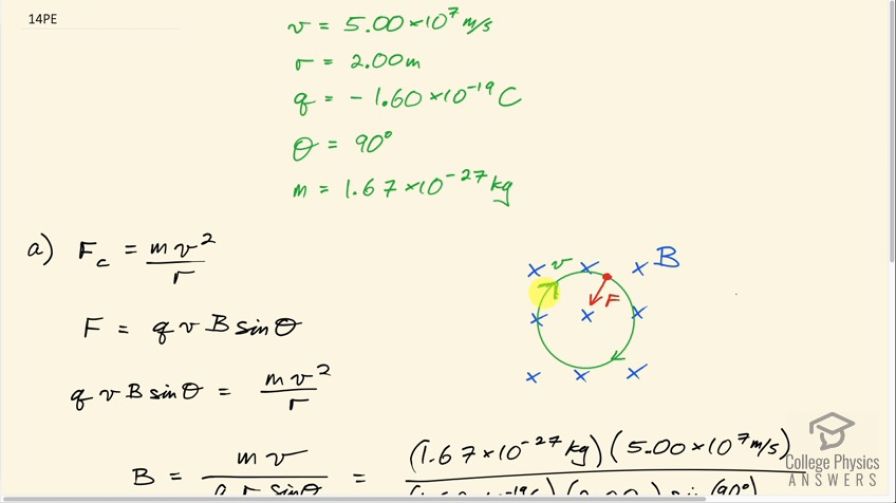 14PE
v = 5.00×10⁷ m/s
r = 2.00m
q = -1.60×10⁻¹⁹ C
θ = 90°
m = 1.67×10⁻²⁷ kg
a) F_c = mv²/r
× v × × B
F
× × ×
× × ×
F = qvB sinθ
qvB sinθ = mv²/r
B = mv/qr sinθ = (1.67×10⁻²⁷ kg)(5.00×10⁷ m/s)
College Physics
ANSWERS